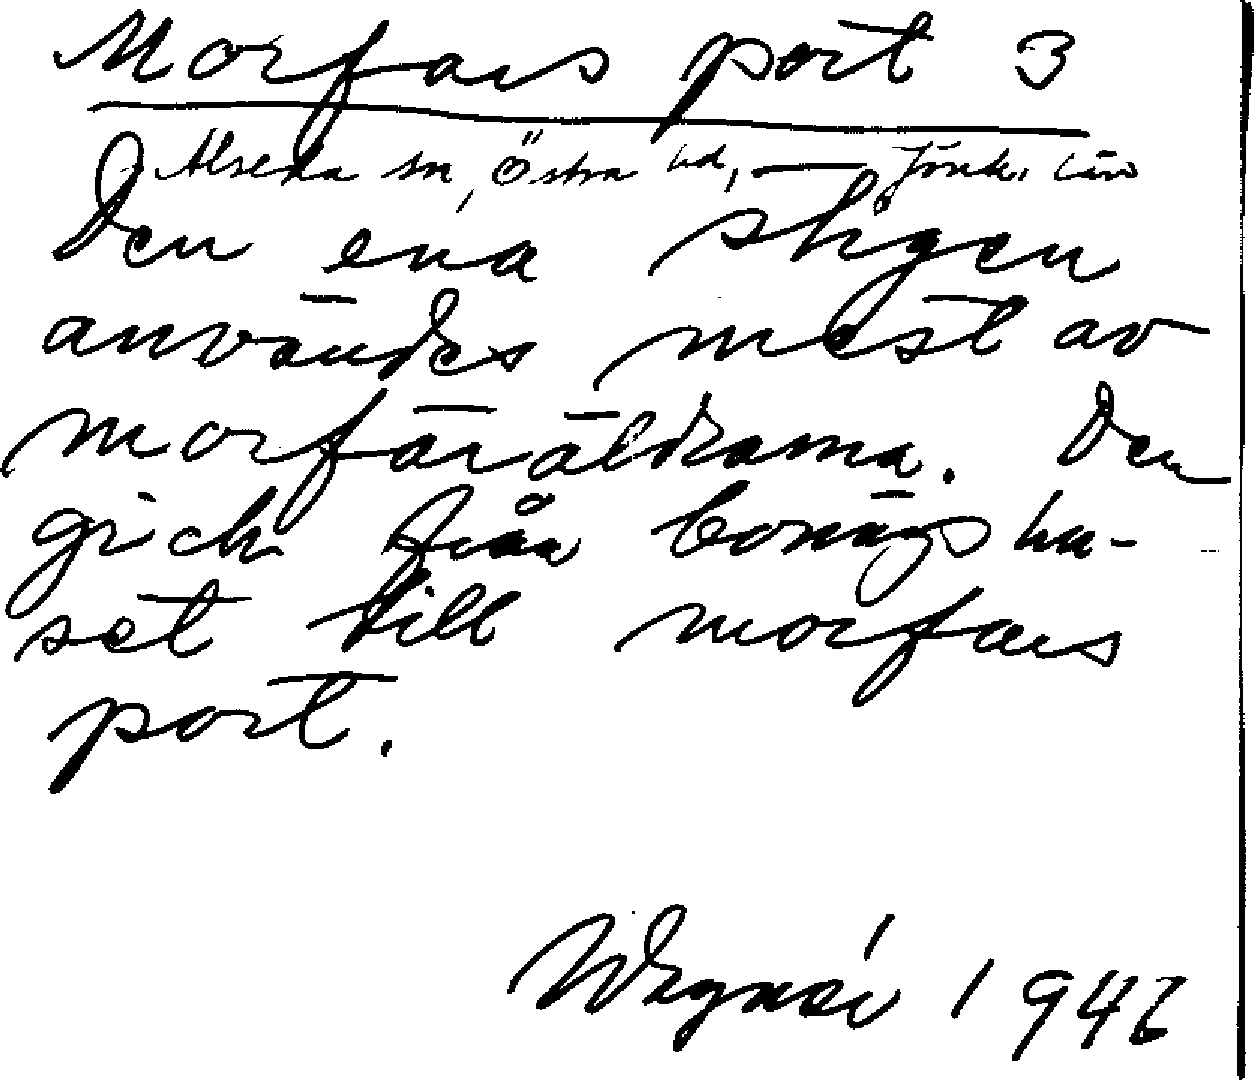 Morfars port 3
Alseda sn, Östra hd, — Jönk. län
Den ena stigen
användes mest av
morföräldrarna. Den
gick från bonings hu-
set till morfars
port.
Wegnér 1947